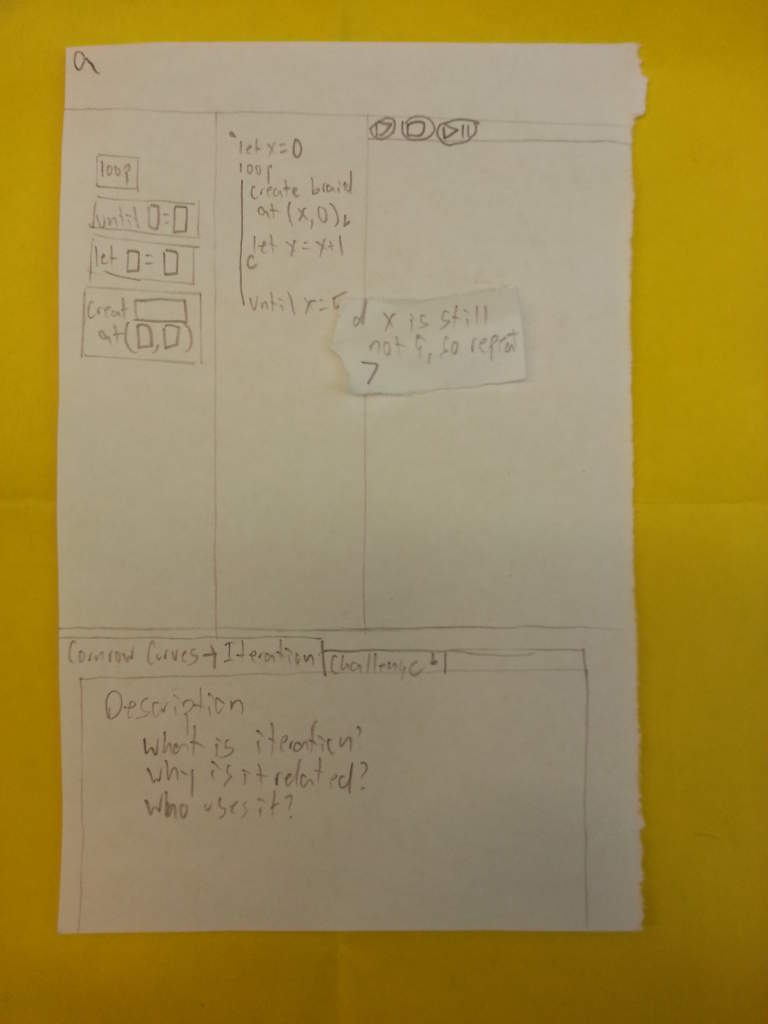 a
loop
until □=□
let □=□
Creat
at(□,□)
let x=0
loop
create braid
at (x,0)b
let x=x+1
c
until x=5
d x is still
not 5, so repeat
Cornrow Curves + Iteration
Challenge
Description
what is iteration?
why is it related?
who uses it?